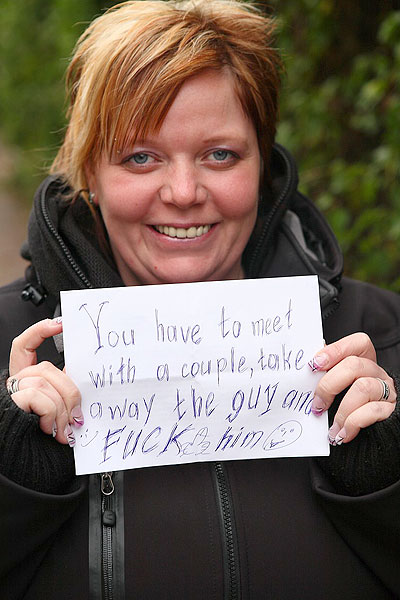 You have to meet
with a couple, take
away the guy and
FUCK him